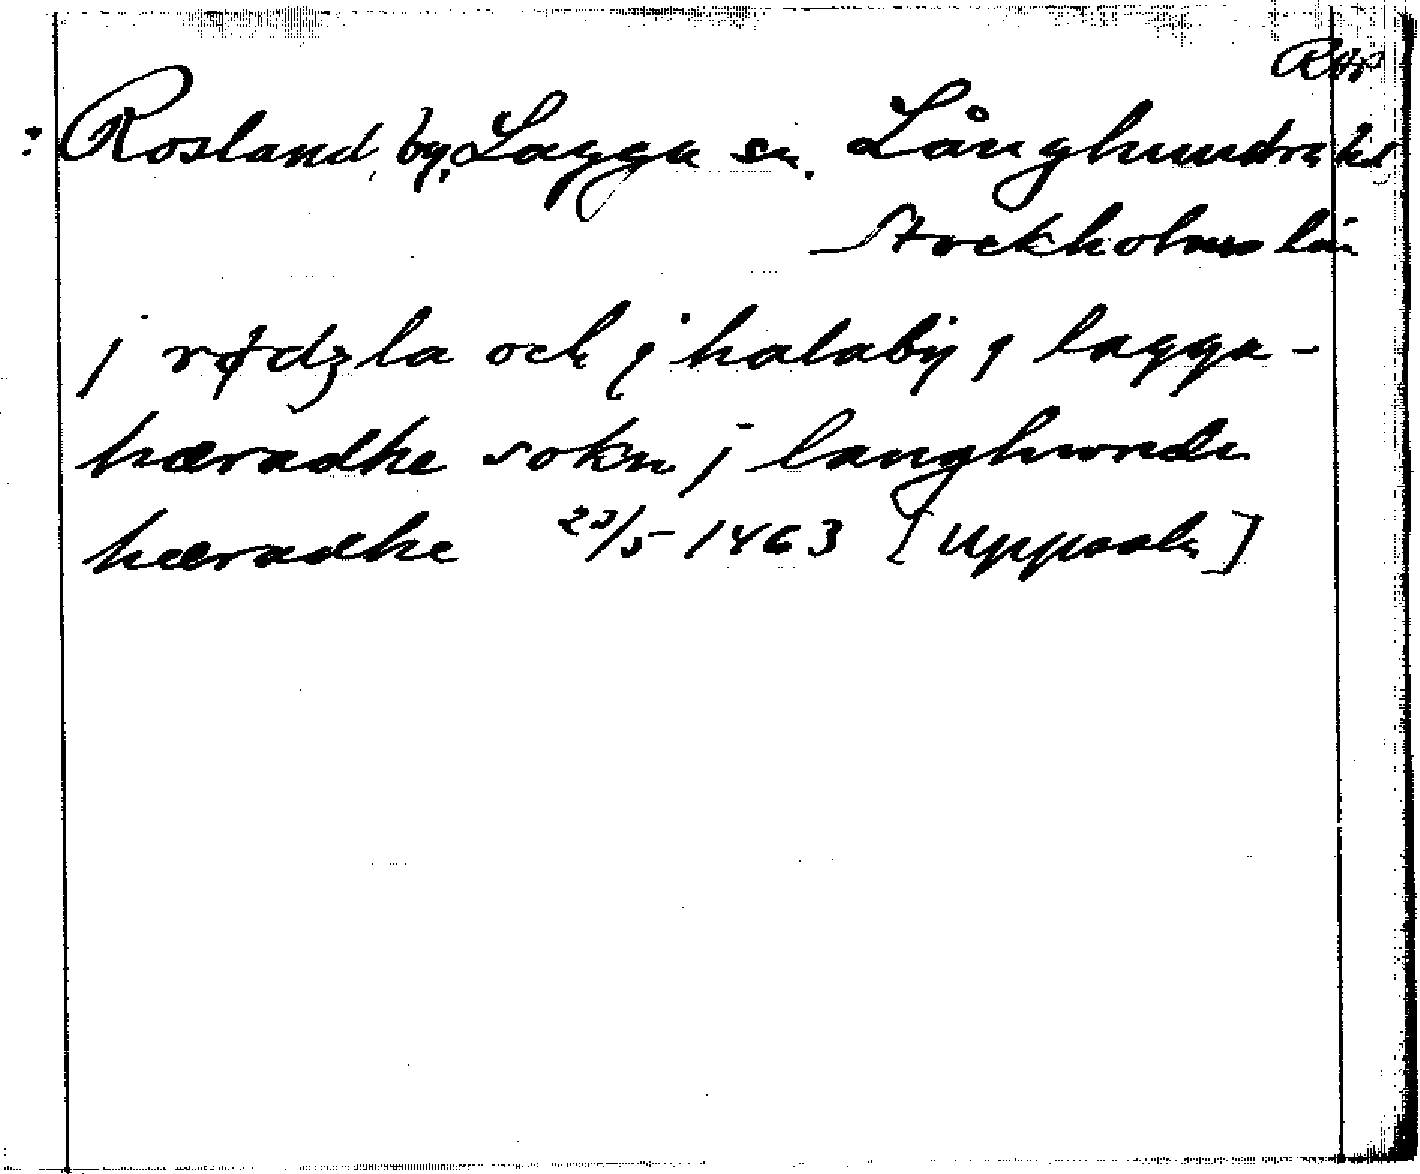 RAP
: Rosland, by, Lagga sn. Långhundra hd
Stockholms län
j rødzla och j halaby j lagga-
hæradhe sokn j langhunde
hæradhe 23/5 1463 [Uppsala]